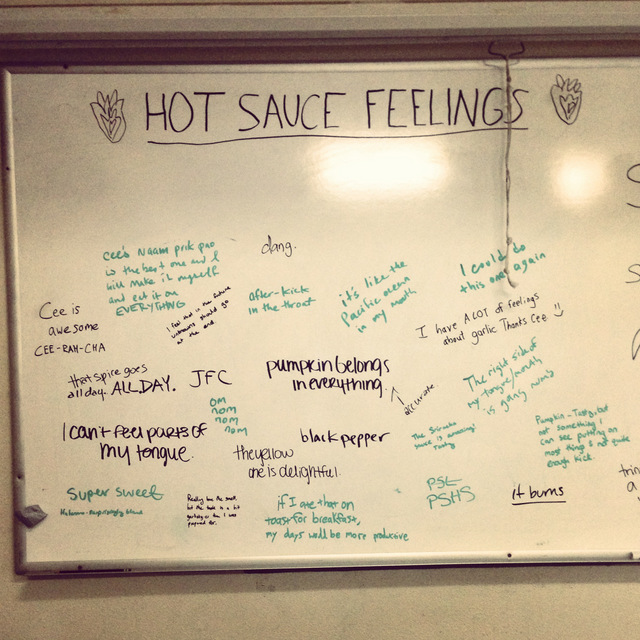 HOT SAUCE FEELINGS
cee's NAam prik pao
is the best one and I
will make it myself
and eat it on
EVERYTHING
dang.
Cee is
awesome
CEE-RAH-CHA
I feel that in the future
unknowns should go
at the end.
after-kick
in the throat
it's like the
Pacific ocean
in my mouth
I could do
this one again
I have A LOT of feelings
about garlic Thanks Cee :)
that spice goes
all day. ALL DAY.
JFC
pumpkin belongs
in everything.
accurate.
The right side of
my tongue/mouth
is going numb
om
nom
nom
nom
I can't feel parts of
my tongue.
the yellow
one is delightful.
black pepper
The Sriracha
there is amazing!
Tasty
Pumpkin - Tasty, but
not something I
can see putting on
most things & not quite
enough kick.
Super sweet
Habanero - surprisingly bland
Really love the smell,
but the taste is a bit
garlicky than I was
prepared for.
if I ate that on
toast for breakfast,
my days would be more productive
PSL
PSHS
it burns